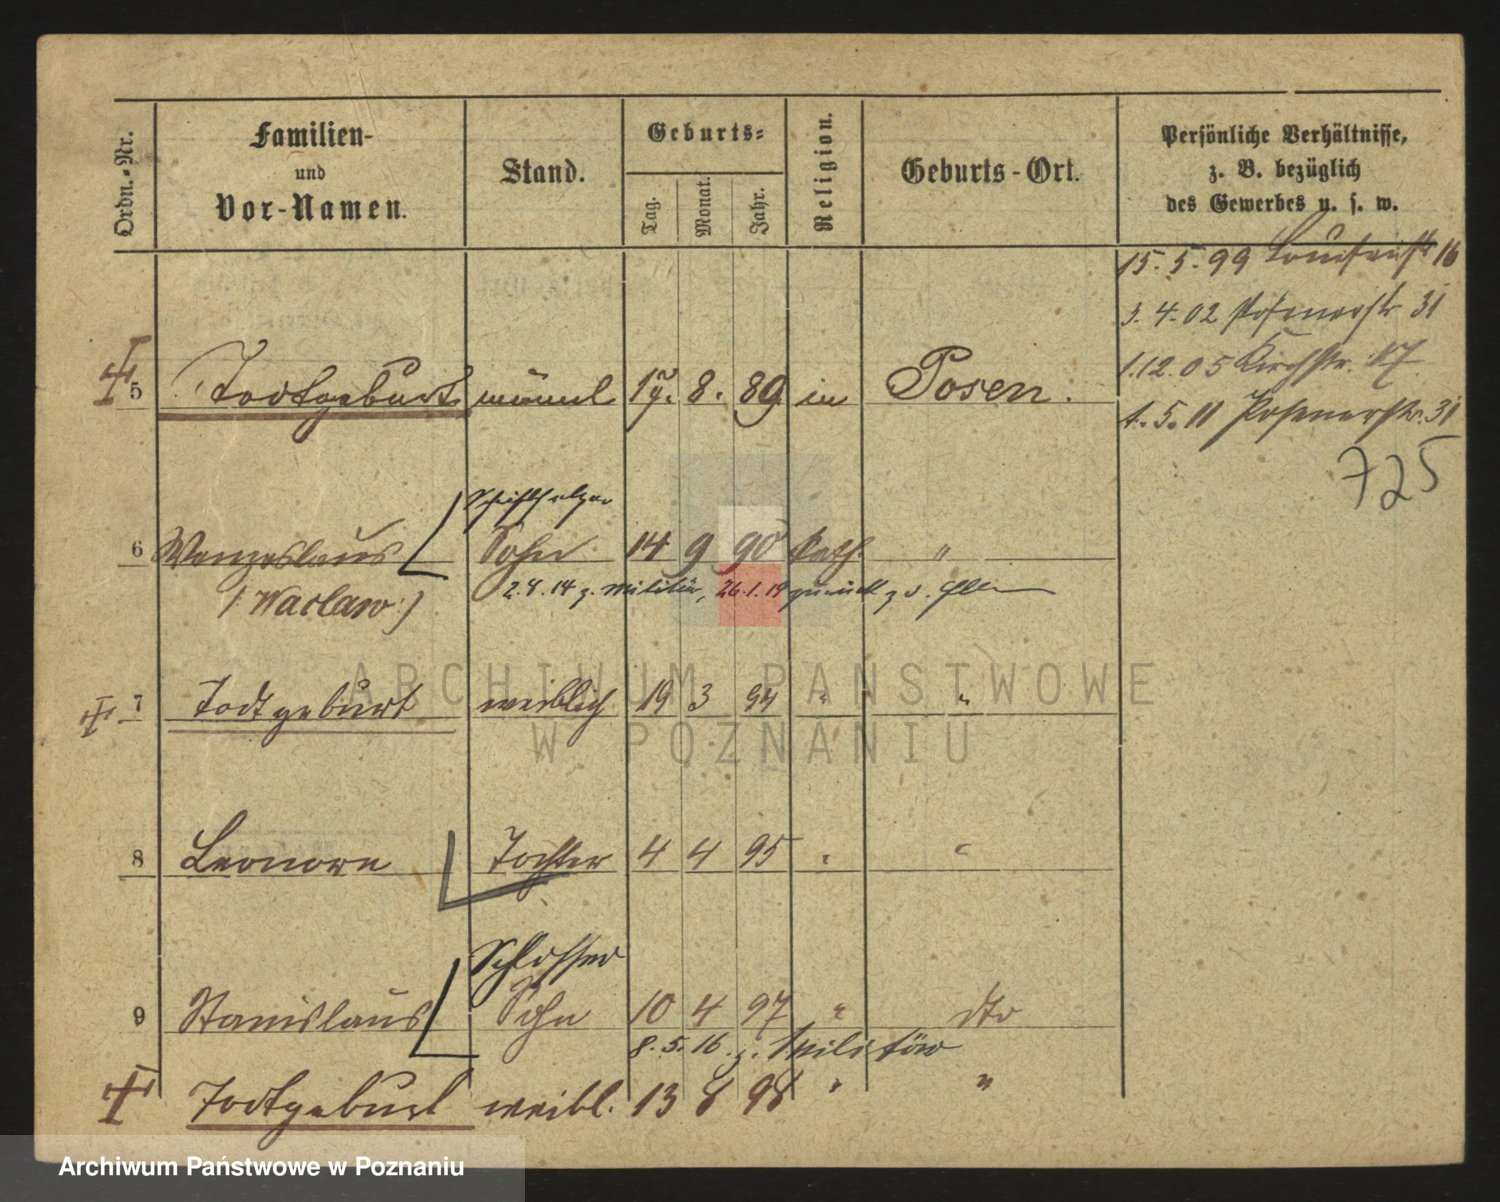 Ordn.-Nr. Familien- und Vor-Namen. Stand. Geburts- Tag. Monat. Jahr. Religion. Geburts-Ort. Persönliche Verhältnisse, z. B. bezüglich des Gewerbes u. s. w.
15. 5. 99 Louisenstr 16
3. 4. 02 Posenerstr 31
1.12.05 Kirchstr. 17
1. 5. 11 Posenerstr. 31
725
5 Todtgeburt männl 17. 8. 89 in Posen.
Schriftsetzer
6 Wenzeslaus Sohn 14 9 90 kath. "
(: Wacław :) 2.8.14 z. Militär, 26.1.19 zurück z. d.
7 Todtgeburt weiblich 19 3 94 " "
ARCHIWUM PAŃSTWOWE
W POZNANIU
8 Leonore Tochter 4 4 95 " "
Schlosser
9 Stanislaus Sohn 10 4 97 " dto
8. 5. 16 z. Militär
Todtgeburt weibl. 13 8 98 " "
Archiwum Państwowe w Poznaniu